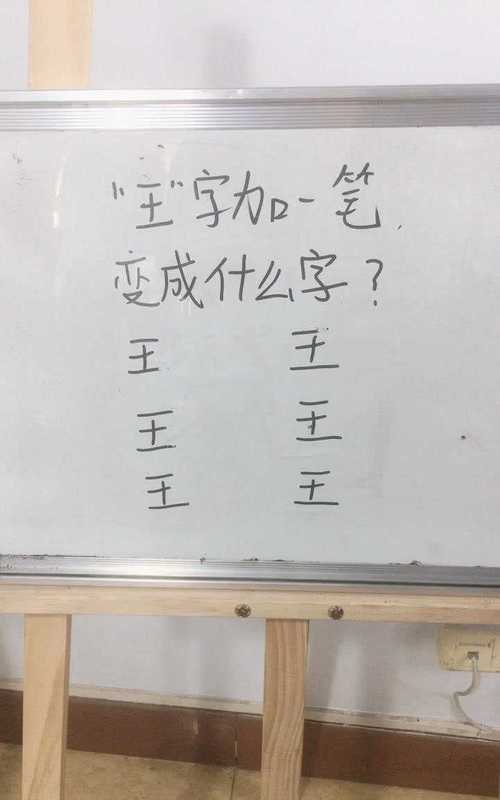 “王”字加一笔，
变成什么字？
王 王
王 王
王 王